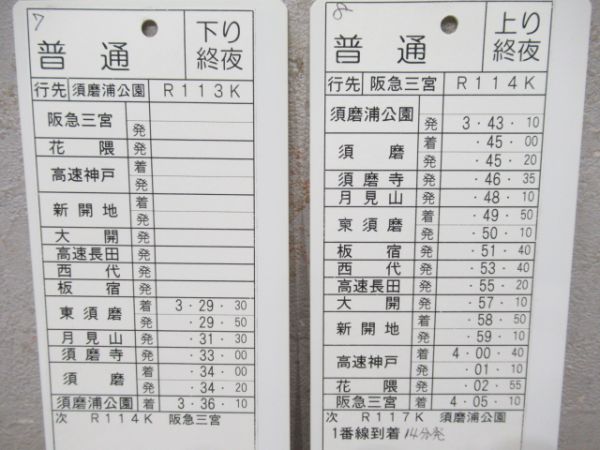 7
普通 下り
終夜
行先 須磨浦公園 R113K
阪急三宮 発
花隈 発
高速神戸 着
発
新開地 着
発
大開 発
高速長田 発
西代 発
板宿 発
東須磨 着 3・29・30
発 ・29・50
月見山 発 ・31・30
須磨寺 発 ・33・00
須磨 着 ・34・00
発 ・34・20
須磨浦公園 着 3・36・10
次 R114K 阪急三宮
8
普通 上り
終夜
行先 阪急三宮 R114K
須磨浦公園 発 3・43・10
須磨 着 ・45・00
発 ・45・20
須磨寺 発 ・46・35
月見山 発 ・48・10
東須磨 着 ・49・50
発 ・50・10
板宿 発 ・51・40
西代 発 ・53・40
高速長田 発 ・55・20
大開 発 ・57・10
新開地 着 ・58・50
発 ・59・10
高速神戸 着 4・00・40
発 ・01・10
花隈 発 ・02・55
阪急三宮 着 4・05・10
次 R117K 須磨浦公園
1番線到着 14分発